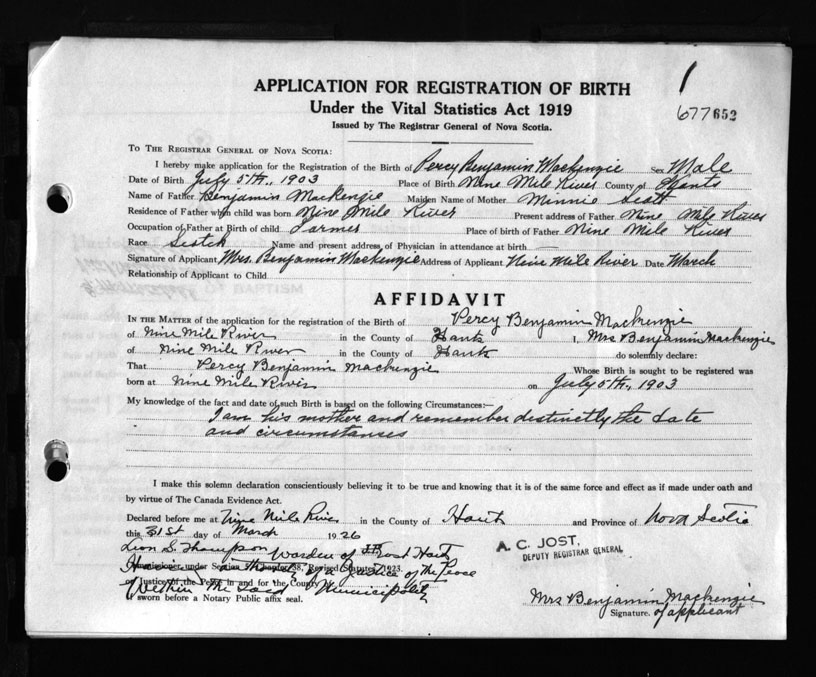 APPLICATION FOR REGISTRATION OF BIRTH
Under the Vital Statistics Act 1919
Issued by The Registrar General of Nova Scotia.
677652
TO THE REGISTRAR GENERAL OF NOVA SCOTIA:
I hereby make application for the Registration of the Birth of Percy Benjamin Mackenzie Sex Male
Date of Birth July 5th., 1903 Place of Birth Nine Mile River County of Hants
Name of Father Benjamin MacKenzie Maiden Name of Mother Minnie Scott
Residence of Father when child was born Nine Mile River Present address of Father Nine Mile River
Occupation of Father at Birth of child Farmer Place of birth of Father Nine Mile River
Race Scotch Name and present address of Physician in attendance at birth —
Signature of Applicant Mrs. Benjamin Mackenzie Address of Applicant Nine Mile River Date March
Relationship of Applicant to Child
AFFIDAVIT
IN THE MATTER of the application for the registration of the Birth of Percy Benjamin Mackenzie
of Nine Mile River in the County of Hants I, Mrs Benjamin Mackenzie
of Nine Mile River in the County of Hants do solemnly declare:
That Percy Benjamin Mackenzie Whose Birth is sought to be registered was
born at Nine Mile River on July 5th., 1903
My knowledge of the fact and date of such Birth is based on the following Circumstances:—
I am his mother and remember distinctly the date
and circumstances
I make this solemn declaration conscientiously believing it to be true and knowing that it is of the same force and effect as if made under oath and
by virtue of The Canada Evidence Act.
Declared before me at Nine Mile River in the County of Hants and Province of Nova Scotia
this 31st day of March 1926
Leon S. Thompson Warden of East Hants
A. C. JOST,
DEPUTY REGISTRAR GENERAL
a Justice of the Peace
or Justice of the Peace in and for the County
Within the Said Municipality
If sworn before a Notary Public affix seal.
Mrs Benjamin Mackenzie
Signature. of applicant